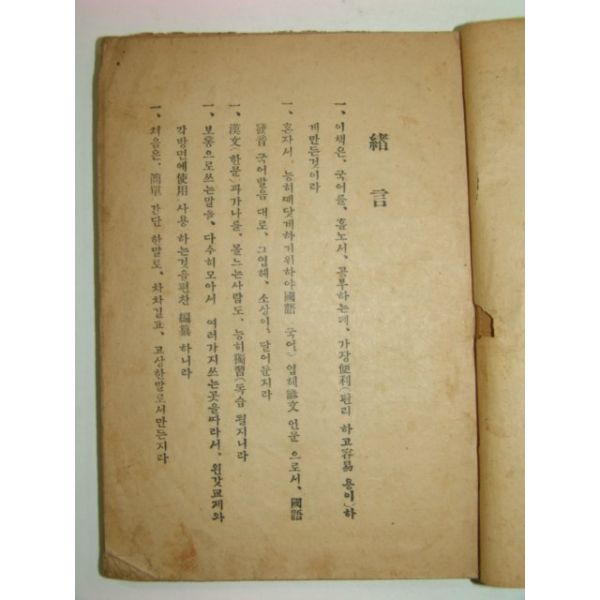 緖言
一、이책은、국어를、홀노서、공부하는데、가장便利(편리 하고容易 용이)하
게만든것이라
一、혼자서、능히깨닷게하기위하야國語(국어、)엽헤諺文 언문 으로서、國語
發音 국어발음 대로、그엽헤、소상이、달어둔지라
一、漢文(한문)과가나를、몰느는사람도、능히獨習(독습 될지니라
一、보통으로쓰는말을、다수히모아서 여러가지쓰는곳을따라서、왼갓교제와
각방면에使用 사용 하는것을편찬 編纂 하니라
一、처음은、簡單 간단 한말로、차차길고、고상한말로서만든지라